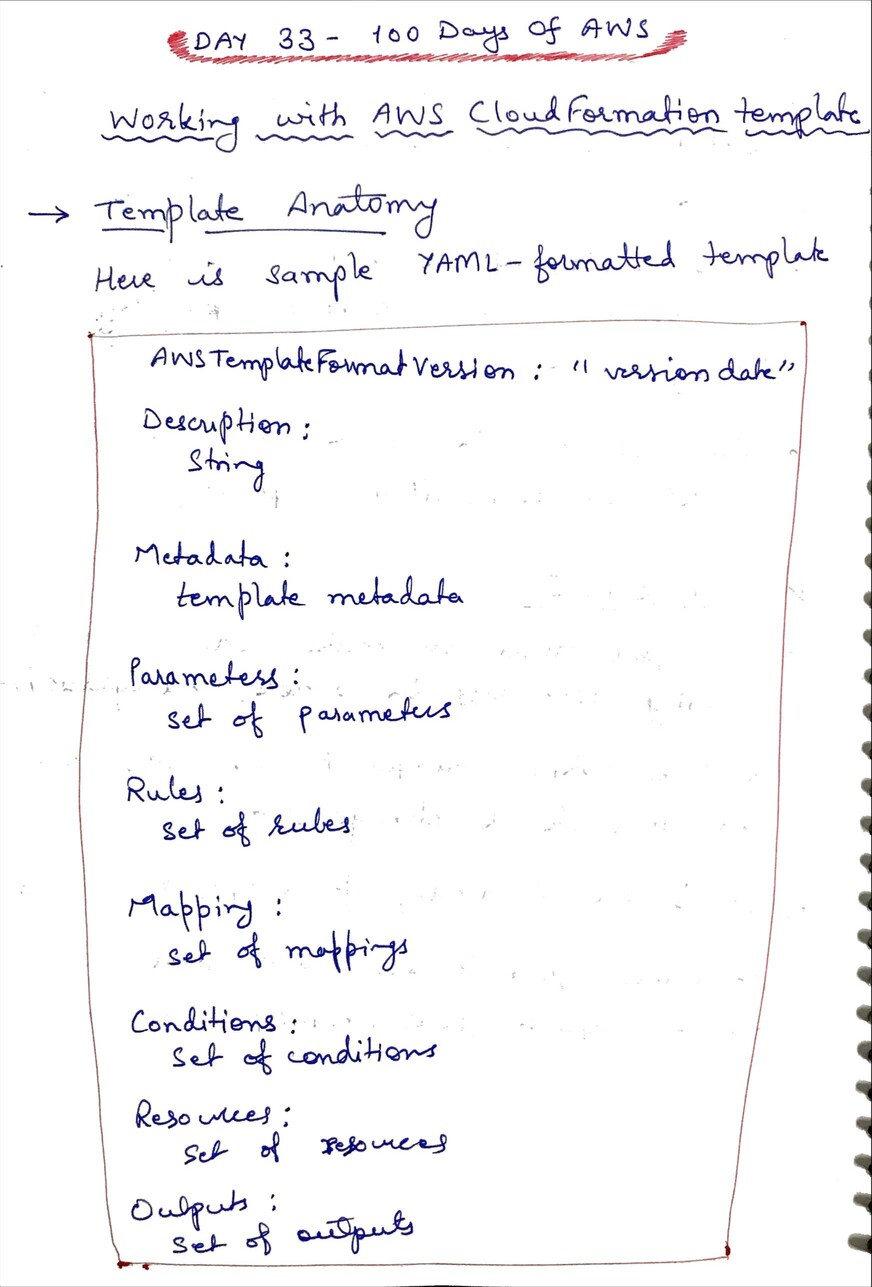 DAY 33 - 100 Days Of AWS
Working with AWS CloudFormation template
→ Template Anatomy
Here is sample YAML-formatted template
AWSTemplateFormatVersion : "version date"
Description :
String
Metadata :
template metadata
Parameters :
set of parameters
Rules :
set of rules
Mapping :
set of mappings
Conditions :
set of conditions
Resources :
set of resources
Outputs :
set of outputs